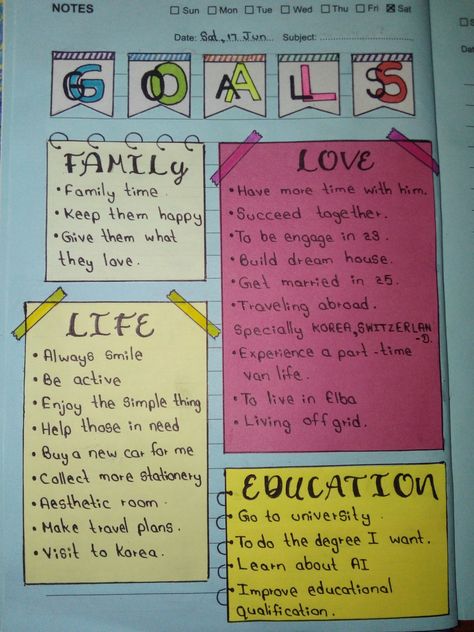 NOTES
Sun Mon Tue Wed Thu Fri Sat
Date: Sat, 17 Jun Subject:
GOALS
FAMILY
• Family time.
• Keep them happy
• Give them what
they love.
LOVE
• Have more time with him.
• Succeed together.
• To be engage in 23.
• Build dream house.
• Get married in 25.
• Traveling abroad.
specially KOREA, SWITZERLAN
-D.
• Experience a part-time
van life.
• To live in Elba
• Living off grid.
LIFE
• Always smile
• Be active
• Enjoy the simple thing
• Help those in need
• Buy a new car for me
• Collect more stationery
• Aesthetic room.
• Make travel plans.
• Visit to Korea.
EDUCATION
• Go to university.
• To do the degree I want.
• Learn about AI
• Improve educational
qualification.